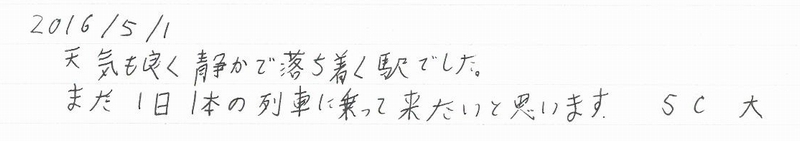 2016/5/1
天気も良く静かで落ち着く駅でした。
また1日1本の列車に乗って来たいと思います. SC 大